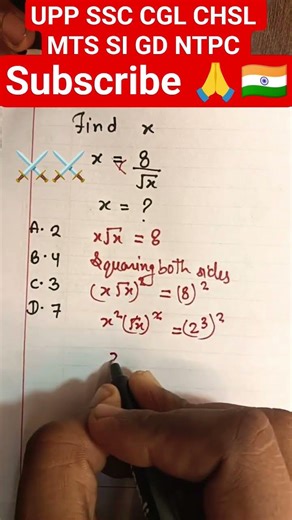 UPP SSC CGL CHSL
MTS SI GD NTPC
Subscribe 🙏🇮🇳
Find x
x = 8/√x
x = ?
A. 2
B. 4
C. 3
D. 7
x√x = 8
Squaring both sides
(x√x)² = (8)²
x²(√x)² = (2³)²